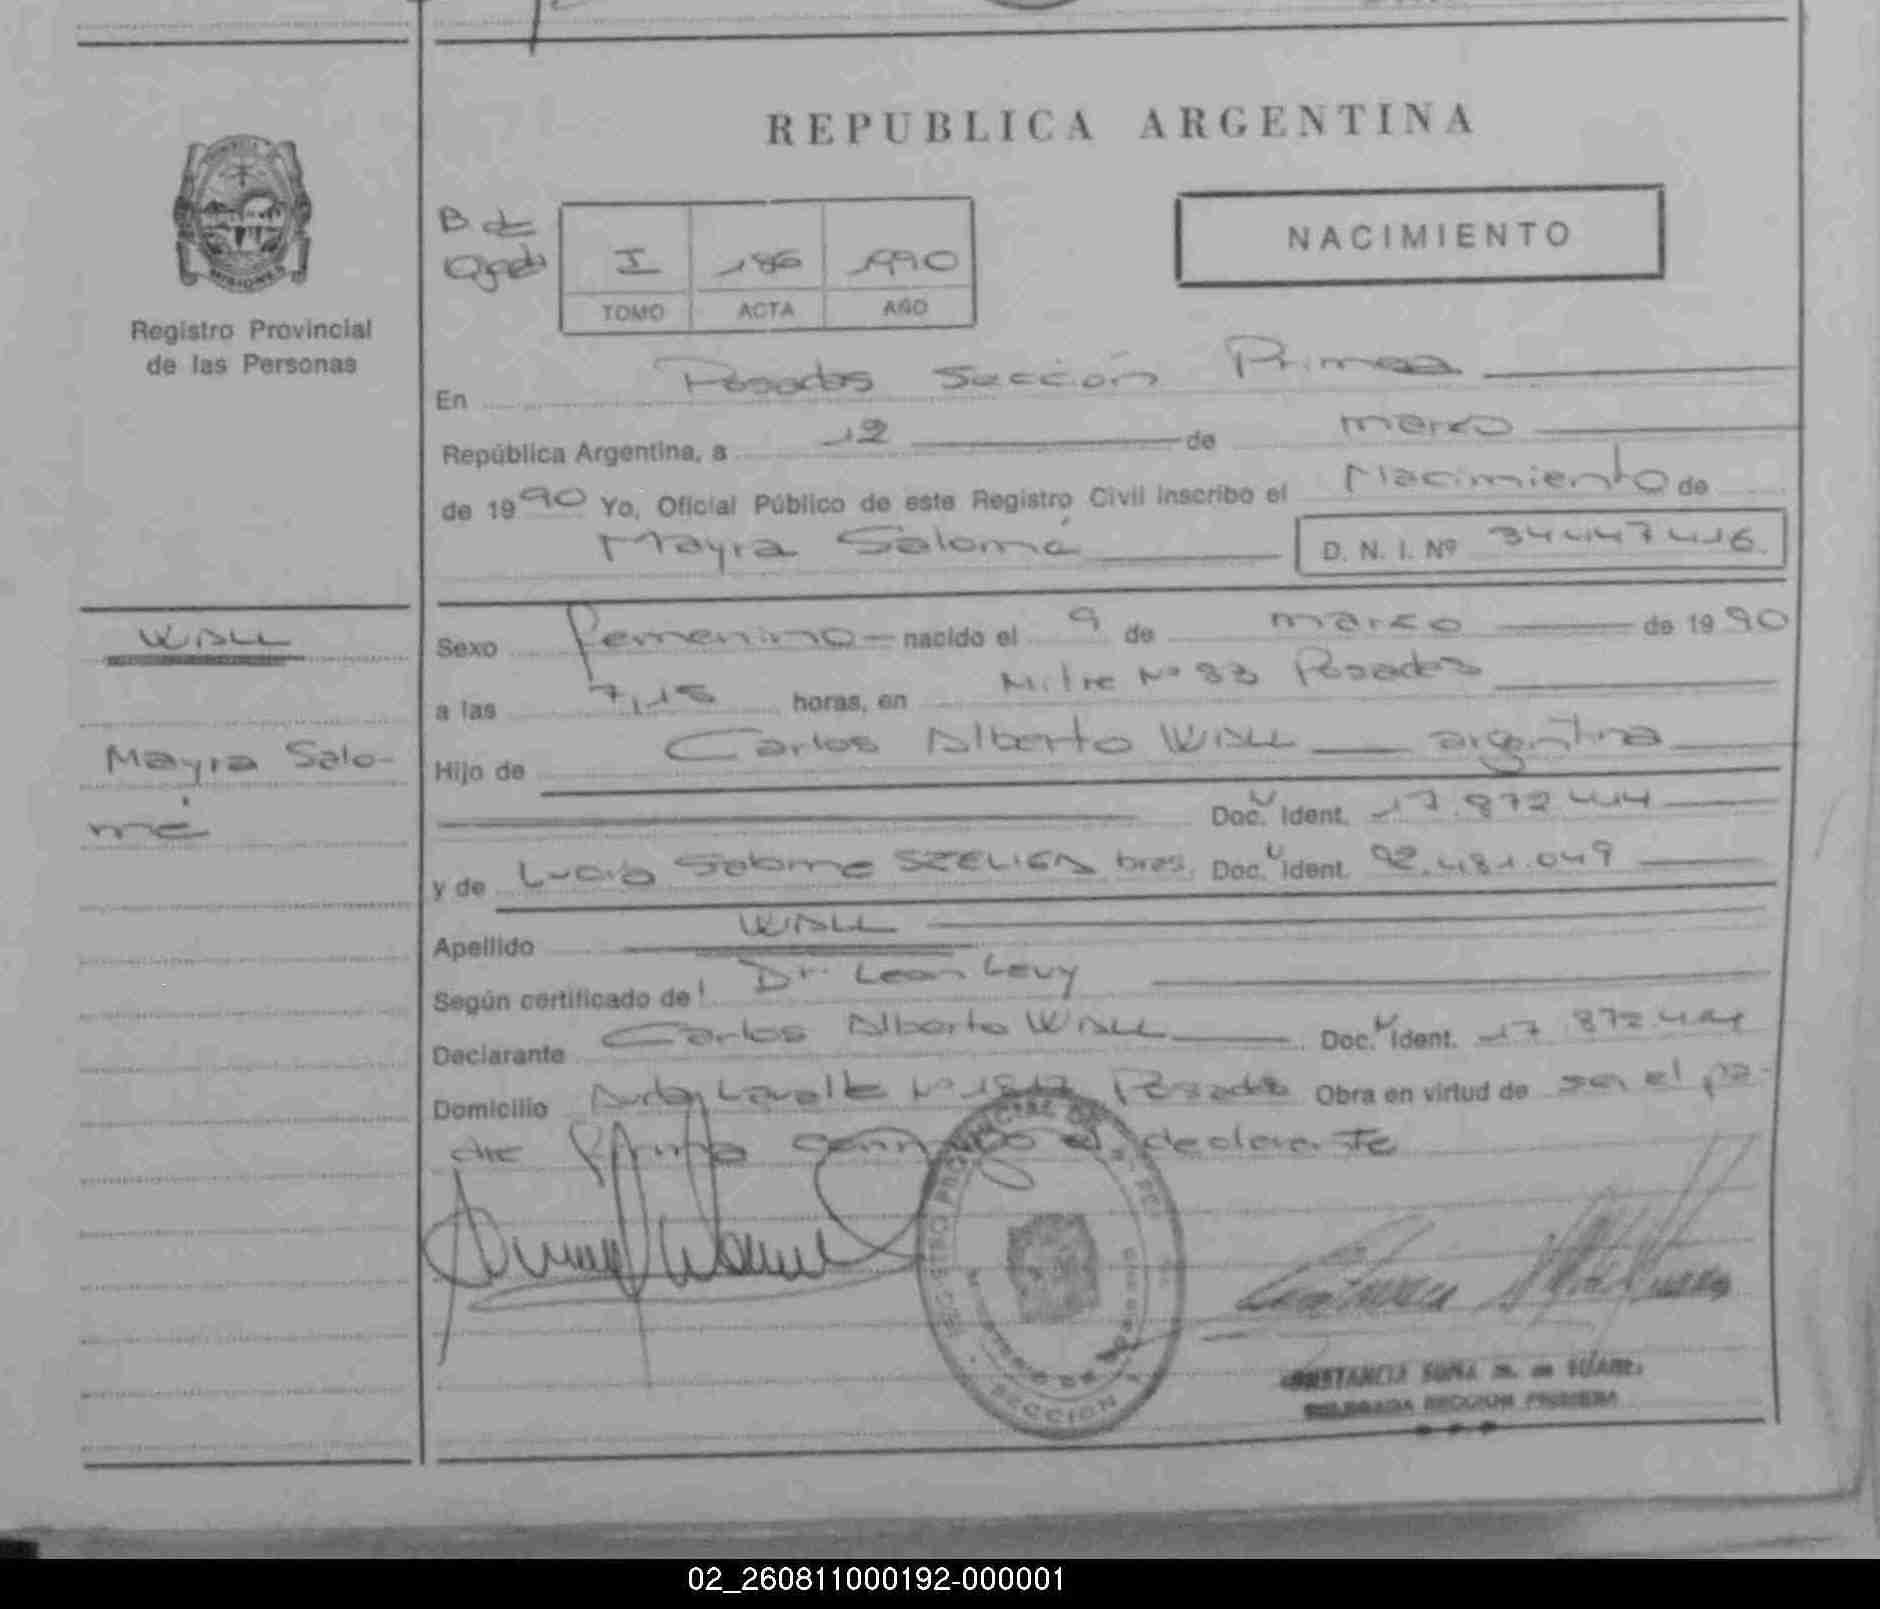 REPUBLICA ARGENTINA
NACIMIENTO
B. de
I 186 1990
TOMO ACTA AÑO
MISIONES
Registro Provincial
de las Personas
En Posadas Sección Primera
República Argentina, a 12 de marzo
de 1990 Yo, Oficial Público de este Registro Civil inscribo el Nacimiento de
Mayra Salomé D. N. I. Nº 34447416
WALL
Sexo femenino nacido el 9 de marzo de 1990
a las 7,15 horas, en Mitre Nº 83 Posadas
Mayra Salo-
mé
Hijo de Carlos Alberto WALL argentina
Doc. Ident. 17.872.414
y de Salome bras. Doc. Ident. 92.481.049
Apellido WALL
Según certificado de Dr. Leon Levy
Declarante Carlos Alberto WALL Doc. Ident. 17.872.414
Domicilio Avda Lavalle Nº Posadas Obra en virtud de ser el pa-
dre Firma el declarante
SECCION
SECCION PRIMERA
02_260811000192-000001